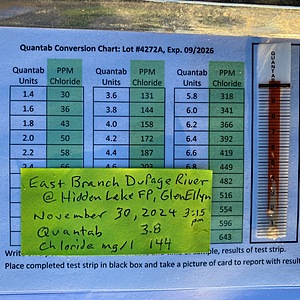 Quantab Conversion Chart: Lot #4272A, Exp. 09/2026
Quantab Units PPM Chloride Quantab Units PPM Chloride Quantab Units PPM Chloride
1.4 30 3.6 131 5.8 318
1.6 36 3.8 144 6.0 341
1.8 43 4.0 158 6.2 366
2.0 50 4.2 172 6.4 392
2.2 58 4.4 187 6.6 419
2.4 66 4.6 203 6.8 449
482
516
554
596
643
East Branch DuPage River
@ Hidden Lake FP, Glen Ellyn
November 30, 2024 3:15 pm
Quantab 3.8
Chloride mg/l 144
sample, results of test strip.
Place completed test strip in black box and take a picture of card to report with
QUANTAB